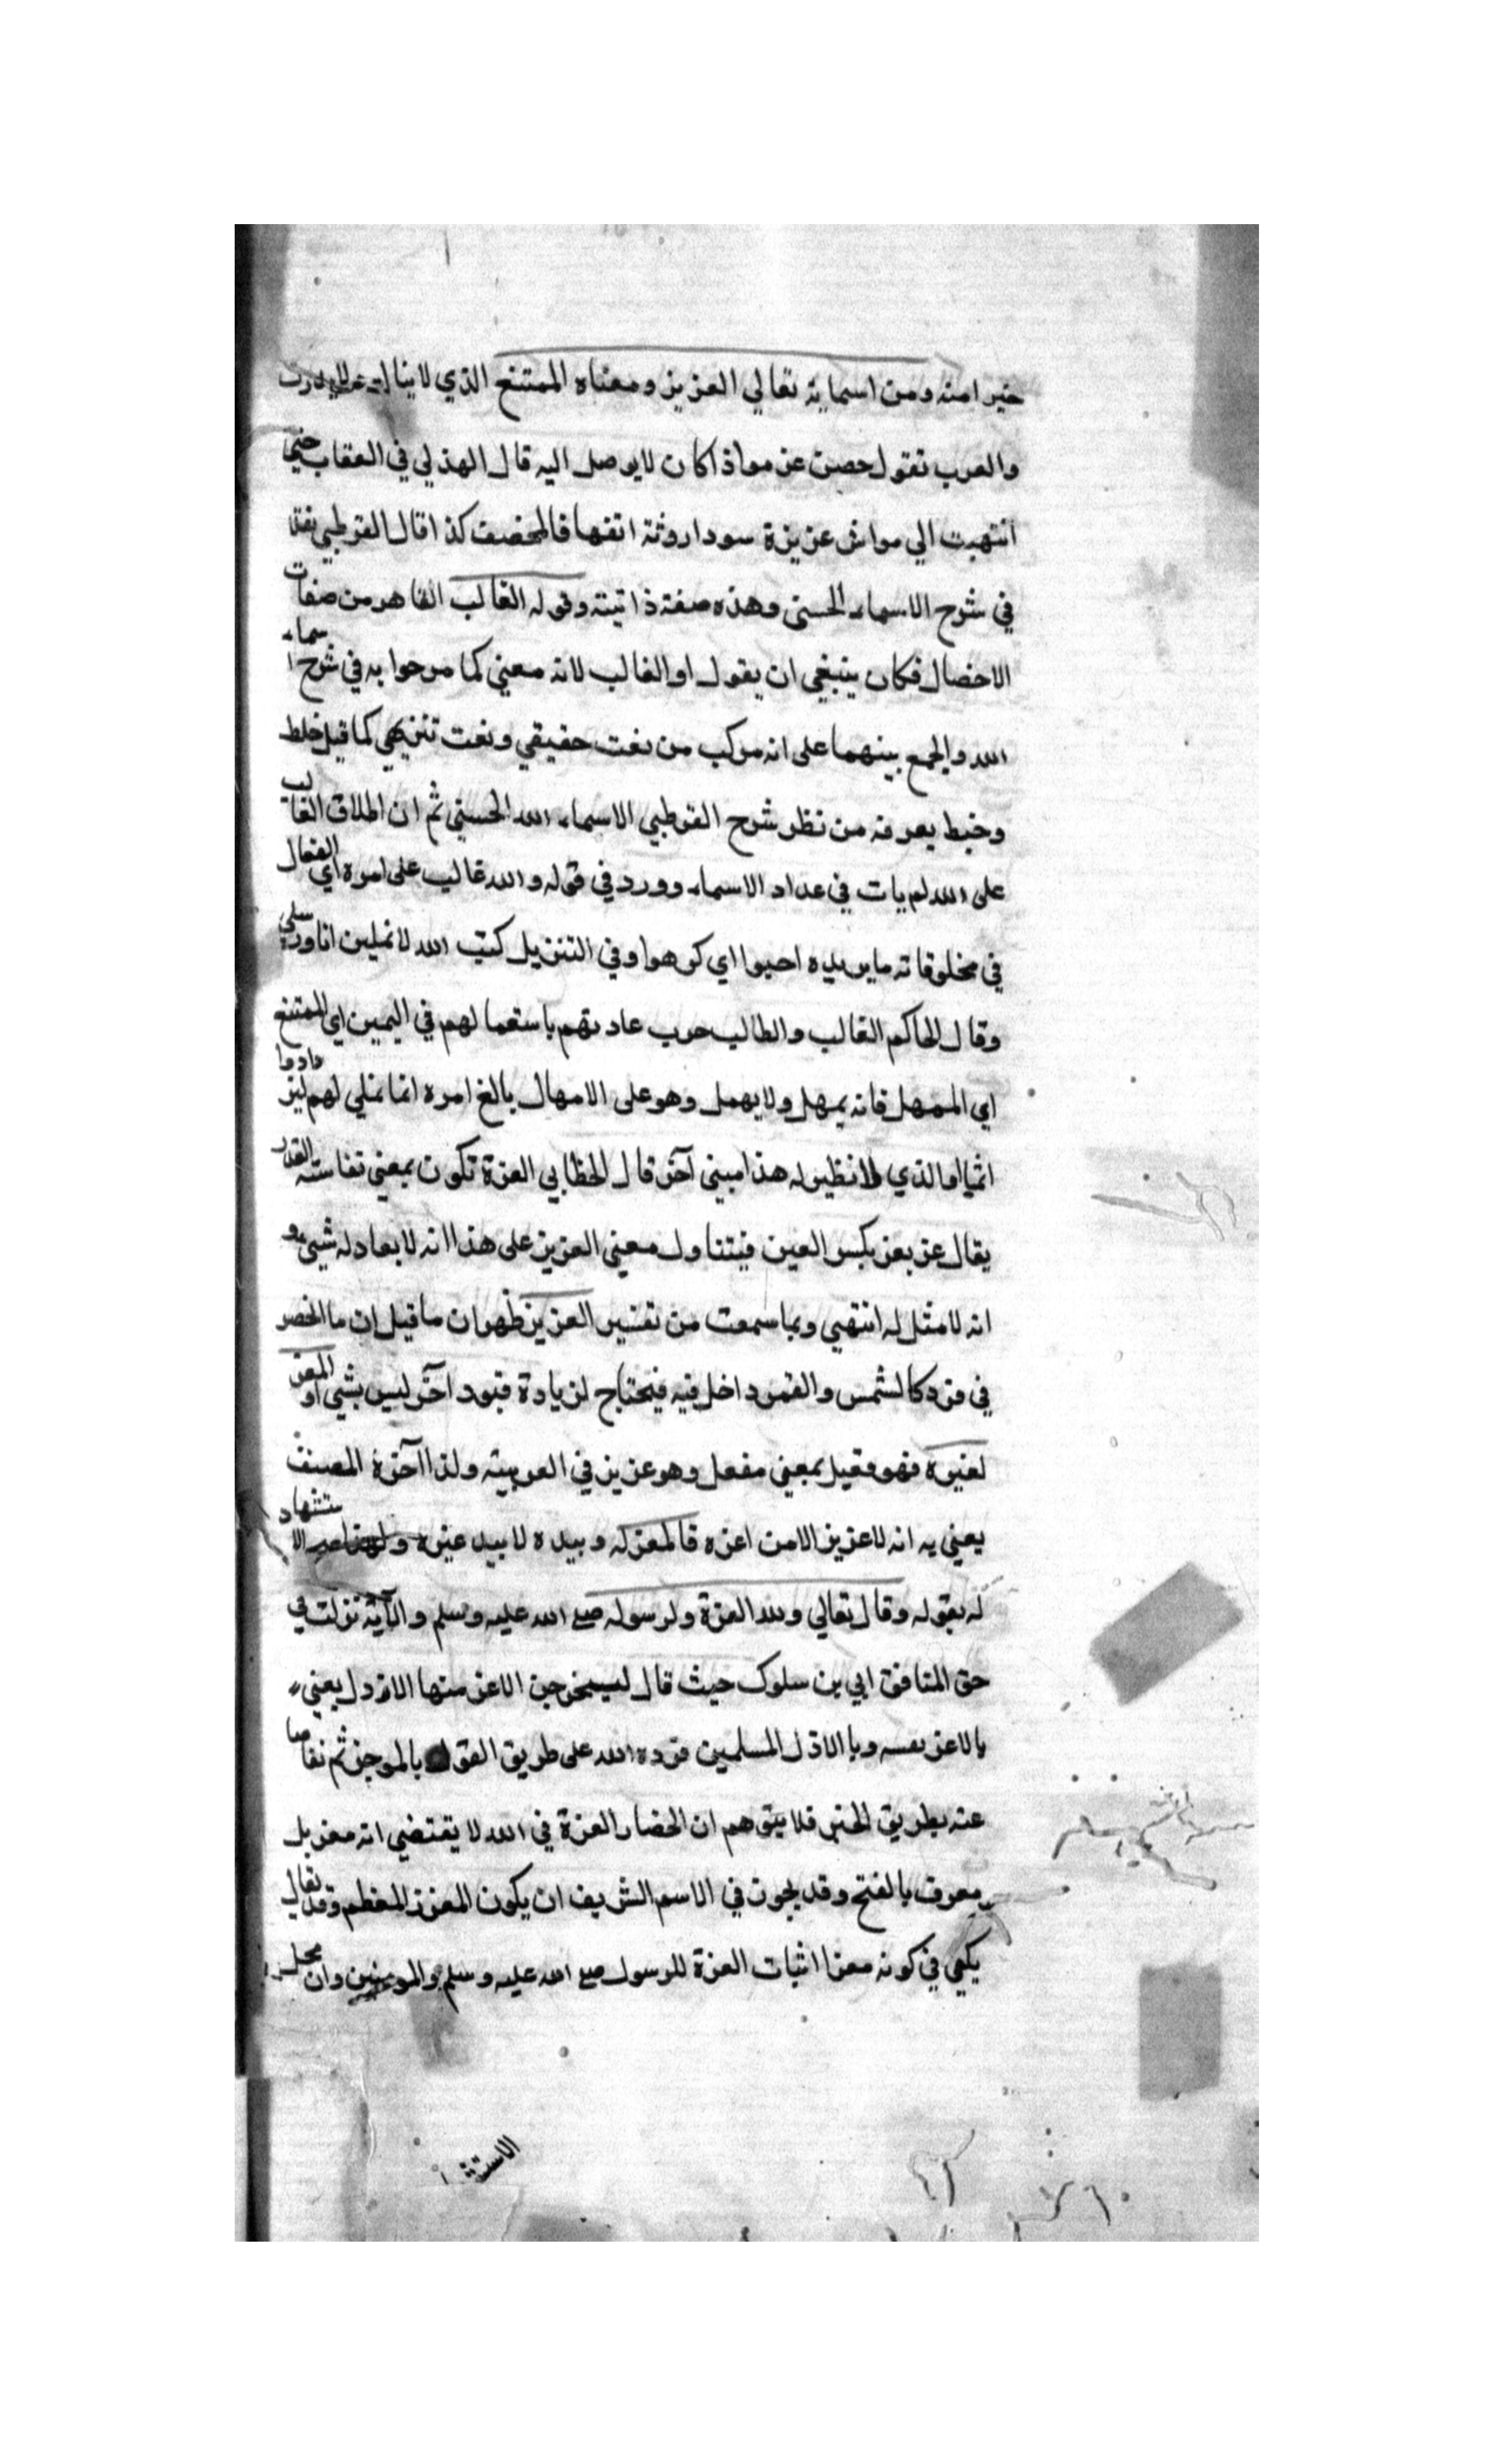 خيرا منه ومن اسمايه تعالي العزيز ومعناه الممتنع الذي لا ينال
والعرب تقول حصن عزموا ذا كان لا يوصل اليه قال الهذلي في العقاب حتي
انتهيت الي مواش عزيزة سودا روثة انفها فالمخصف كذا قال القرطبي نقلا
في شرح الاسماء الحسني وهذه صفة ذاتية وقوله الغالب القاهر من صفات
الاخصال فكان ينبغي ان يقول او الغالب لانه معني كما مرحوا به في شرح اسماء
الله والجمع بينهما على انه مركب من نعت حقيقي ونعت تنزيهي كما قيل خلط
وخبط يعرفه من نظر شرح القرطبي الاسماء الله الحسني ثم ان اطلاق الغالب
على الله لم يات في عداد الاسماء وورد في قوله والله غالب على امره اي الفعال
في مخلوقاته ما يريده احبوا اي كرهوا وفي التنزيل كتب الله لاغلبن انا ورسلي
وقال الحاكم الغالب والطالب حرب عادتهم باستعمالهم في اليمين اي الممتنع
اي الممهل فانه يمهل ولا يهمل وهو على الامهال بالغ امره انما نملي لهم ليزدادوا
اثما او الذي لا نظير له هذا مبني آخر قال الخطابي العزة تكون بمعني نفاسته القدر
يقال عز يعز بكسر العين فيتناول معني العزيز على هذا انه لا يعادله شيء و
انه لا مثل له انتهي وبما سمعت من تفسير العزيز ظهر ان ما قيل ان ما انحصر
في فرد كالشمس والقمر داخل فيه فيحتاج لزيادة قيود آخر ليس بشي او المعز
لغيره فهو فعيل بمعني مفعل وهو عزيز في العربية ولذا آخره المصنف
يعني به انه لا عزيز الا من اعزه فالمعز له وبيده لا بيد غيره الاستشهاد
له بقوله وقال تعالي ولله العزة ولرسوله صلع الله عليه وسلم والآية نزلت في
حق المنافق ابي بن سلوك حيث قال ليخرجن الاعز منها الاذل يعني
بالاعز نفسه وبالاذل المسلمين فرده الله على طريق القول بالموجز ثم نفاها
عنه بطريق الحبر فلا يتوهم ان انحصار العزة في الله لا يقتضي انه معز بل
معرف بالفتح وقد يجوز في الاسم الشريف ان يكون المعزز المعظم وقد يقال
يكفي في كونه معزا اثبات العزة للرسول صلع الله عليه وسلم والمومنين وان محل
الاستشها